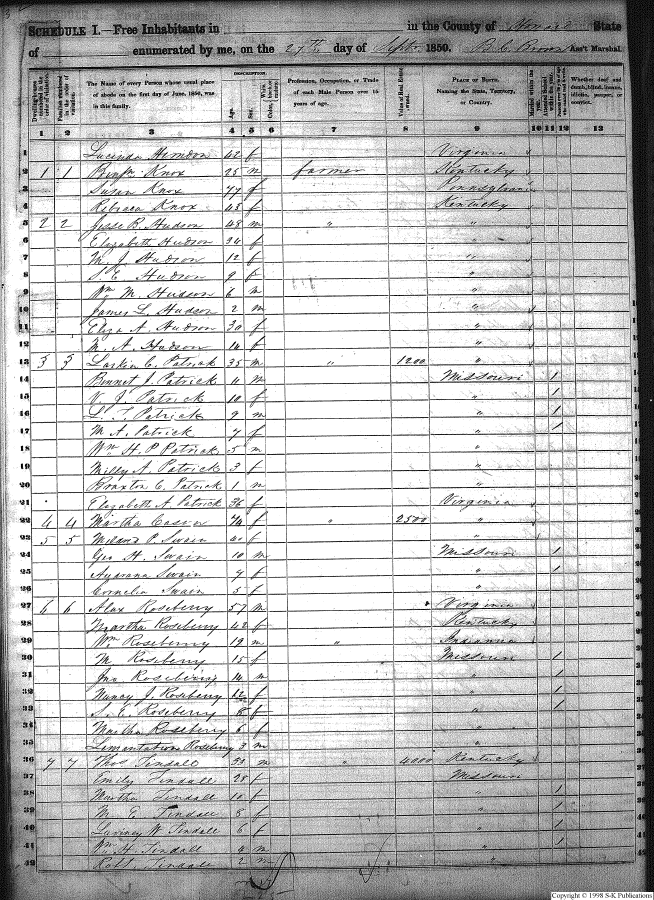 SCHEDULE I.—Free Inhabitants in in the County of Howard State
of enumerated by me, on the 27th day of Sept 1850. B. C. Brown Ass't Marshal.
DESCRIPTION.
The Name of every Person whose usual place of abode on the first day of June, 1850, was in this family.
Age.
Sex.
Profession, Occupation, or Trade of each Male Person over 15 years of age.
Value of Real Estate owned.
PLACE OF BIRTH. Naming the State, Territory, or Country.
Whether deaf and dumb, blind, insane, idiotic, pauper, or convict.
1 2 3 4 5 6 7 8 9 10 11 12 13
1 Lucinda Herndon 42 f Virginia
2 1 1 Benj. Knox 25 m farmer Kentucky
3 Susan Knox 47 f Pennsylvania
4 Rebecca Knox 43 f Kentucky
5 2 2 Jesse B. Hudson 48 m " "
6 Elizabeth Hudson 34 f "
7 M. J. Hudson 12 f "
8 Hudson 9 f "
9 Wm M. Hudson 6 m "
10 James L. Hudson 2 m "
11 Eliza A. Hudson 30 f "
12 M. A. Hudson 14 f "
13 3 3 Larkin C. Patrick 35 m " 1200 "
14 Bennet J. Patrick 11 m Missouri 1
15 V. J. Patrick 10 f " 1
16 L. T. Patrick 9 m " 1
17 M. A. Patrick 7 f " 1
18 Wm H. P. Patrick 5 m "
19 Milly A. Patrick 3 f "
20 Braxton C. Patrick 1 m "
21 Elizabeth A. Patrick 36 f Virginia
22 4 4 Martha f " 2500 "
23 5 5 P. Swain f "
24 Geo H. Swain 10 m Missouri 1
25 Swain 7 f " 1
26 Cornelia Swain 5 f "
27 6 6 Alex Roseberry 57 m Virginia
28 Martha Roseberry 42 f Kentucky
29 Wm. Roseberry 19 m " Indianna
30 M. Roseberry 15 f Missouri 1
31 Jno Roseberry 14 m " 1
32 Nancy J. Roseberry 12 f " 1
33 S. E. Roseberry 8 f " 1
34 Martha Roseberry 6 f "
35 Roseberry 3 m "
36 7 7 Thos Tindall 33 m " 4000 Kentucky
37 Emily Tindall 28 f Missouri
38 Martha Tindall 10 f " 1
39 M. E. Tindall 8 f " 1
40 W. Tindall 6 f " 1
41 Wm. H. Tindall 4 m " 1
42 Robt. Tindall 2 m "
Copyright © 1998 S-K Publications